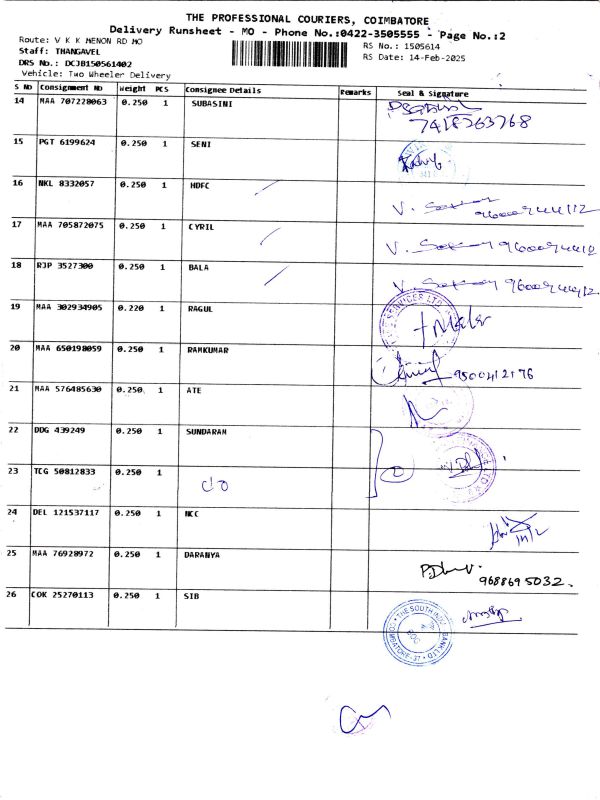 THE PROFESSIONAL COURIERS, COIMBATORE
Delivery Runsheet - MO - Phone No.:0422-3505555 - Page No.:2
Route: V K K MENON RD MO
RS No.: 1505614
Staff: THANGAVEL
RS Date: 14-Feb-2025
DRS No.: DCJB150561402
Vehicle: Two Wheeler Delivery
S No Consignment No Weight PCS Consignee Details Remarks Seal & Signature
14 MAA 707228063 0.250 1 SUBASINI
7418263768
15 PGT 6199624 0.250 1 SENI
16 NKL 8332057 0.250 1 HDFC
17 MAA 705872075 0.250 1 CYRIL
18 RJP 3527300 0.250 1 BALA
19 MAA 302934905 0.220 1 RAGUL
20 MAA 650198059 0.250 1 RAMKUMAR
9500412176
21 MAA 576485630 0.250 1 ATE
22 DDG 439249 0.250 1 SUNDARAM
23 TCG 50812833 0.250 1
24 DEL 121537117 0.250 1 NCC
25 MAA 76928972 0.250 1 DARANYA
9688695032.
26 COK 25270113 0.250 1 SIB
THE SOUTH INDIAN BANK LTD
COIMBATORE-37